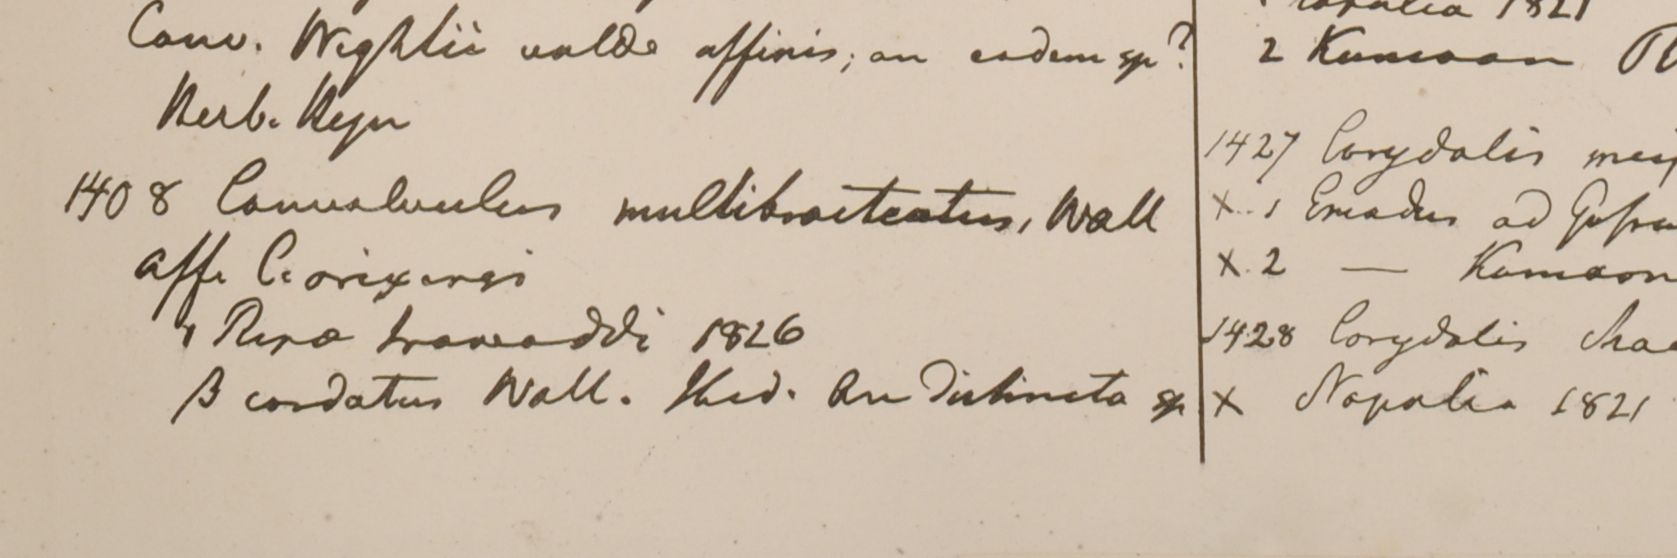 Conv. Wightii valde affinis; an eadem sp?
Herb. Heyn
1408 Convolvulus multibracteatus, Wall
Aff. C. orixensi
1 Ripa Irawaddi 1826
B cordatus Wall. Ibid. An distincta sp
Napalia 1821
2 Kumaon
1427 Corydalis
x. 1 ad
x. 2 — Kamaon
1428 Corydalis
x Napalia 1821